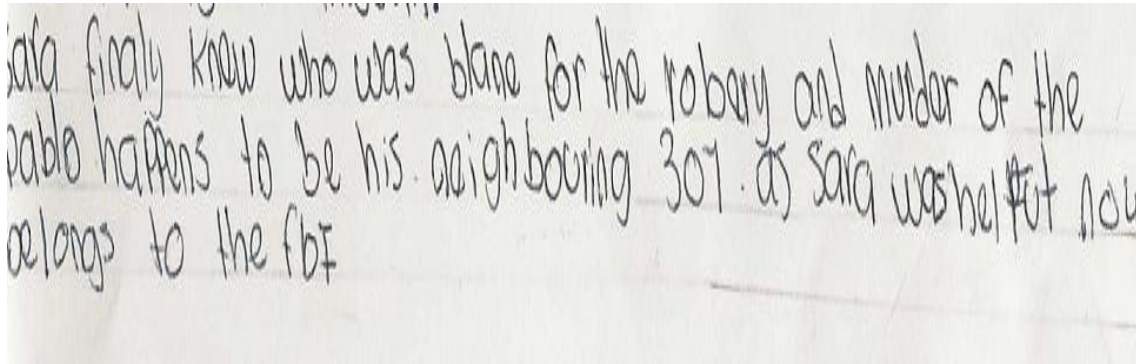 Sara finaly know who was blame for the robery and murder of the
pablo happens to be his neighbouring 307. as Sara was helpfut now
belongs to the fbI